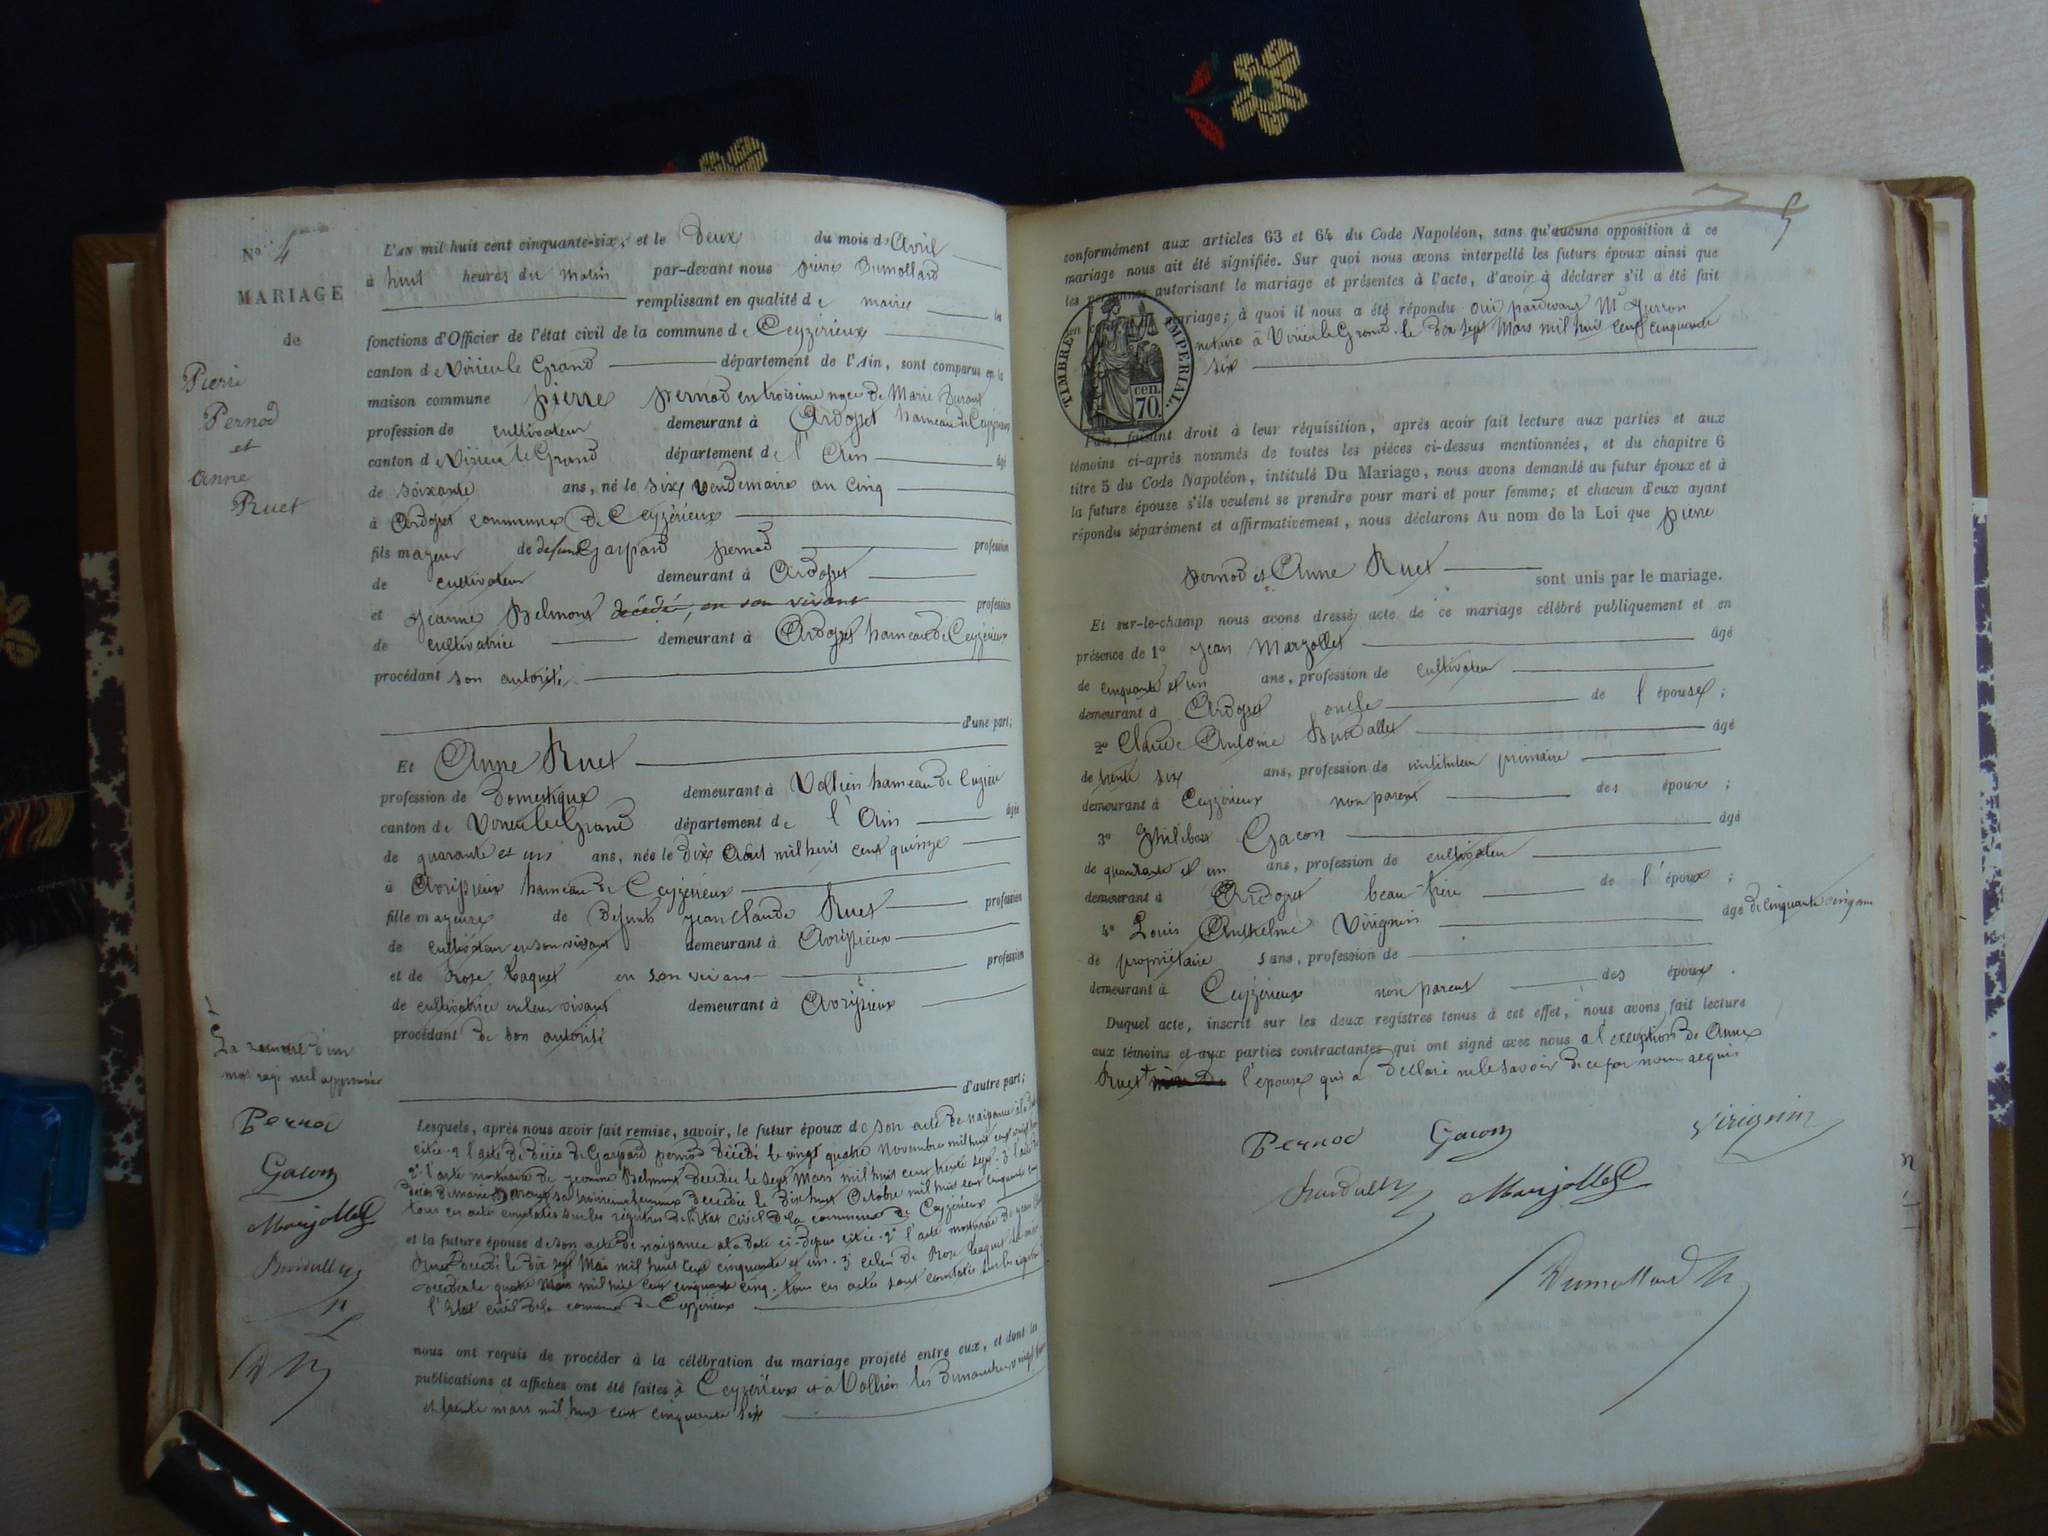 N° 4
MARIAGE
de
Pierre
Pernod
et
Anne
Ruet
L'AN mil huit cent cinquante-six, et le Deux du mois d'Avril
à huit heures du matin par-devant nous pierre Dumollard
remplissant en qualité de maire les
fonctions d'Officier de l'état civil de la commune de Ceyzérieux
canton de Virieu le Grand département de l'Ain, sont comparus en la
maison commune pierre pernod en troisième noce de Marie Durant
profession de cultivateur demeurant à Ardosset hameau de Ceyzérieux
canton de Virieu le Grand département de l'Ain âgé
de soixante ans, né le six vendemiaire an cinq
à Ardosset commune de Ceyzérieux
fils majeur de defunt Gaspard pernod profession
de cultivateur demeurant à Ardosset
et jeanne Belmont décédé, en son vivant profession
de cultivatrice demeurant à Ardosset hameau de Ceyzérieux
procédant son autorité
d'une part;
Et Anne Ruet
profession de Domestique demeurant à Vollien hameau de Cuzieu
canton de Virieu le Grand département de l'Ain âgée
de quarante et un ans, née le dix Aout mil huit cent quinze
à Avrissieux hameau de Ceyzérieux
fille majeure de Defunts jean Claude Ruet profession
de cultivateur en son vivant demeurant à Avrissieux
et de Rose Caquet en son vivant profession
de cultivatrice en leur vivant demeurant à Avrissieux
procédant de son autorité
d'autre part;
La rature d'un
mot rayé nul approuvée
Pernod
Gacon
Marjollet
Lesquels, après nous avoir fait remise, savoir, le futur époux de son acte de naissance à la date
citée 1° l'acte de décès de Gaspard pernod décédé le vingt quatre Novembre mil huit cent vingt
2° l'acte mortuaire de jeanne Belmont decedée le sept Mars mil huit cent trente sept. 3° l'acte de
décès de marie Durant sa troisieme femme decedée le dix huit Octobre mil huit cent cinquante cinq
tous ces actes constatés sur les régistres de l'Etat civil de la commune de Ceyzérieux
et la future épouse de son acte de naissance à la date ci-dessus citée. 2° l'acte mortuaire de jean Claude
Ruet décédé le dix sept Mai mil huit cent cinquante et un. 3° celui de Rose Caquet sa mère
decedée le quatre Mars mil huit cent cinquante cinq. tous ces actes sont constatés sur les registres de
l'Etat civil de la commune de Ceyzérieux
nous ont requis de procéder à la célébration du mariage projeté entre eux, et dont les
publications et affiches ont été faites à Ceyzérieux et à Vollien les Dimanches vingt trois
et trente mars mil huit cent cinquante six
5
conformément aux articles 63 et 64 du Code Napoléon, sans qu'aucune opposition à ce
mariage nous ait été signifiée. Sur quoi nous avons interpellé les futurs époux ainsi que
les personnes autorisant le mariage et présentes à l'acte, d'avoir à déclarer s'il a été fait
un contrat de mariage; à quoi il nous a été répondu oui pardevant Me
notaire à Virieu le Grand. le dix sept Mars mil huit cent cinquante
six
TIMBRE IMPERIAL.
70 cen.
Puis, faisant droit à leur réquisition, après avoir fait lecture aux parties et aux
témoins ci-après nommés de toutes les pièces ci-dessus mentionnées, et du chapitre 6
titre 5 du Code Napoléon, intitulé Du Mariage, nous avons demandé au futur époux et à
la future épouse s'ils veulent se prendre pour mari et pour femme; et chacun d'eux ayant
répondu séparément et affirmativement, nous déclarons Au nom de la Loi que pierre
pernod et Anne Ruet sont unis par le mariage.
Et sur-le-champ nous avons dressé acte de ce mariage célébré publiquement et en
présence de 1° jean Marjollet âgé
de cinquante et un ans, profession de cultivateur
demeurant à Ardosset oncle de l'épouse;
2° Claude Antoine âgé
de trente six ans, profession de instituteur primaire
demeurant à Ceyzérieux non parent des époux;
3° Philibert Gacon âgé
de quarante et un ans, profession de cultivateur
demeurant à Ardosset beau-frère de l'époux;
4° Louis Anthelme Virignin âgé de cinquante cinq ans
de propriétaire sans, profession de
demeurant à Ceyzérieux non parent des époux.
Duquel acte, inscrit sur les deux registres tenus à cet effet, nous avons fait lecture
aux témoins et aux parties contractantes qui ont signé avec nous à l'exception de Anne
Ruet l'épouse qui a déclaré ne le savoir de ce par nous requis
Pernod Gacon Virignin
Marjollet
Dumollard